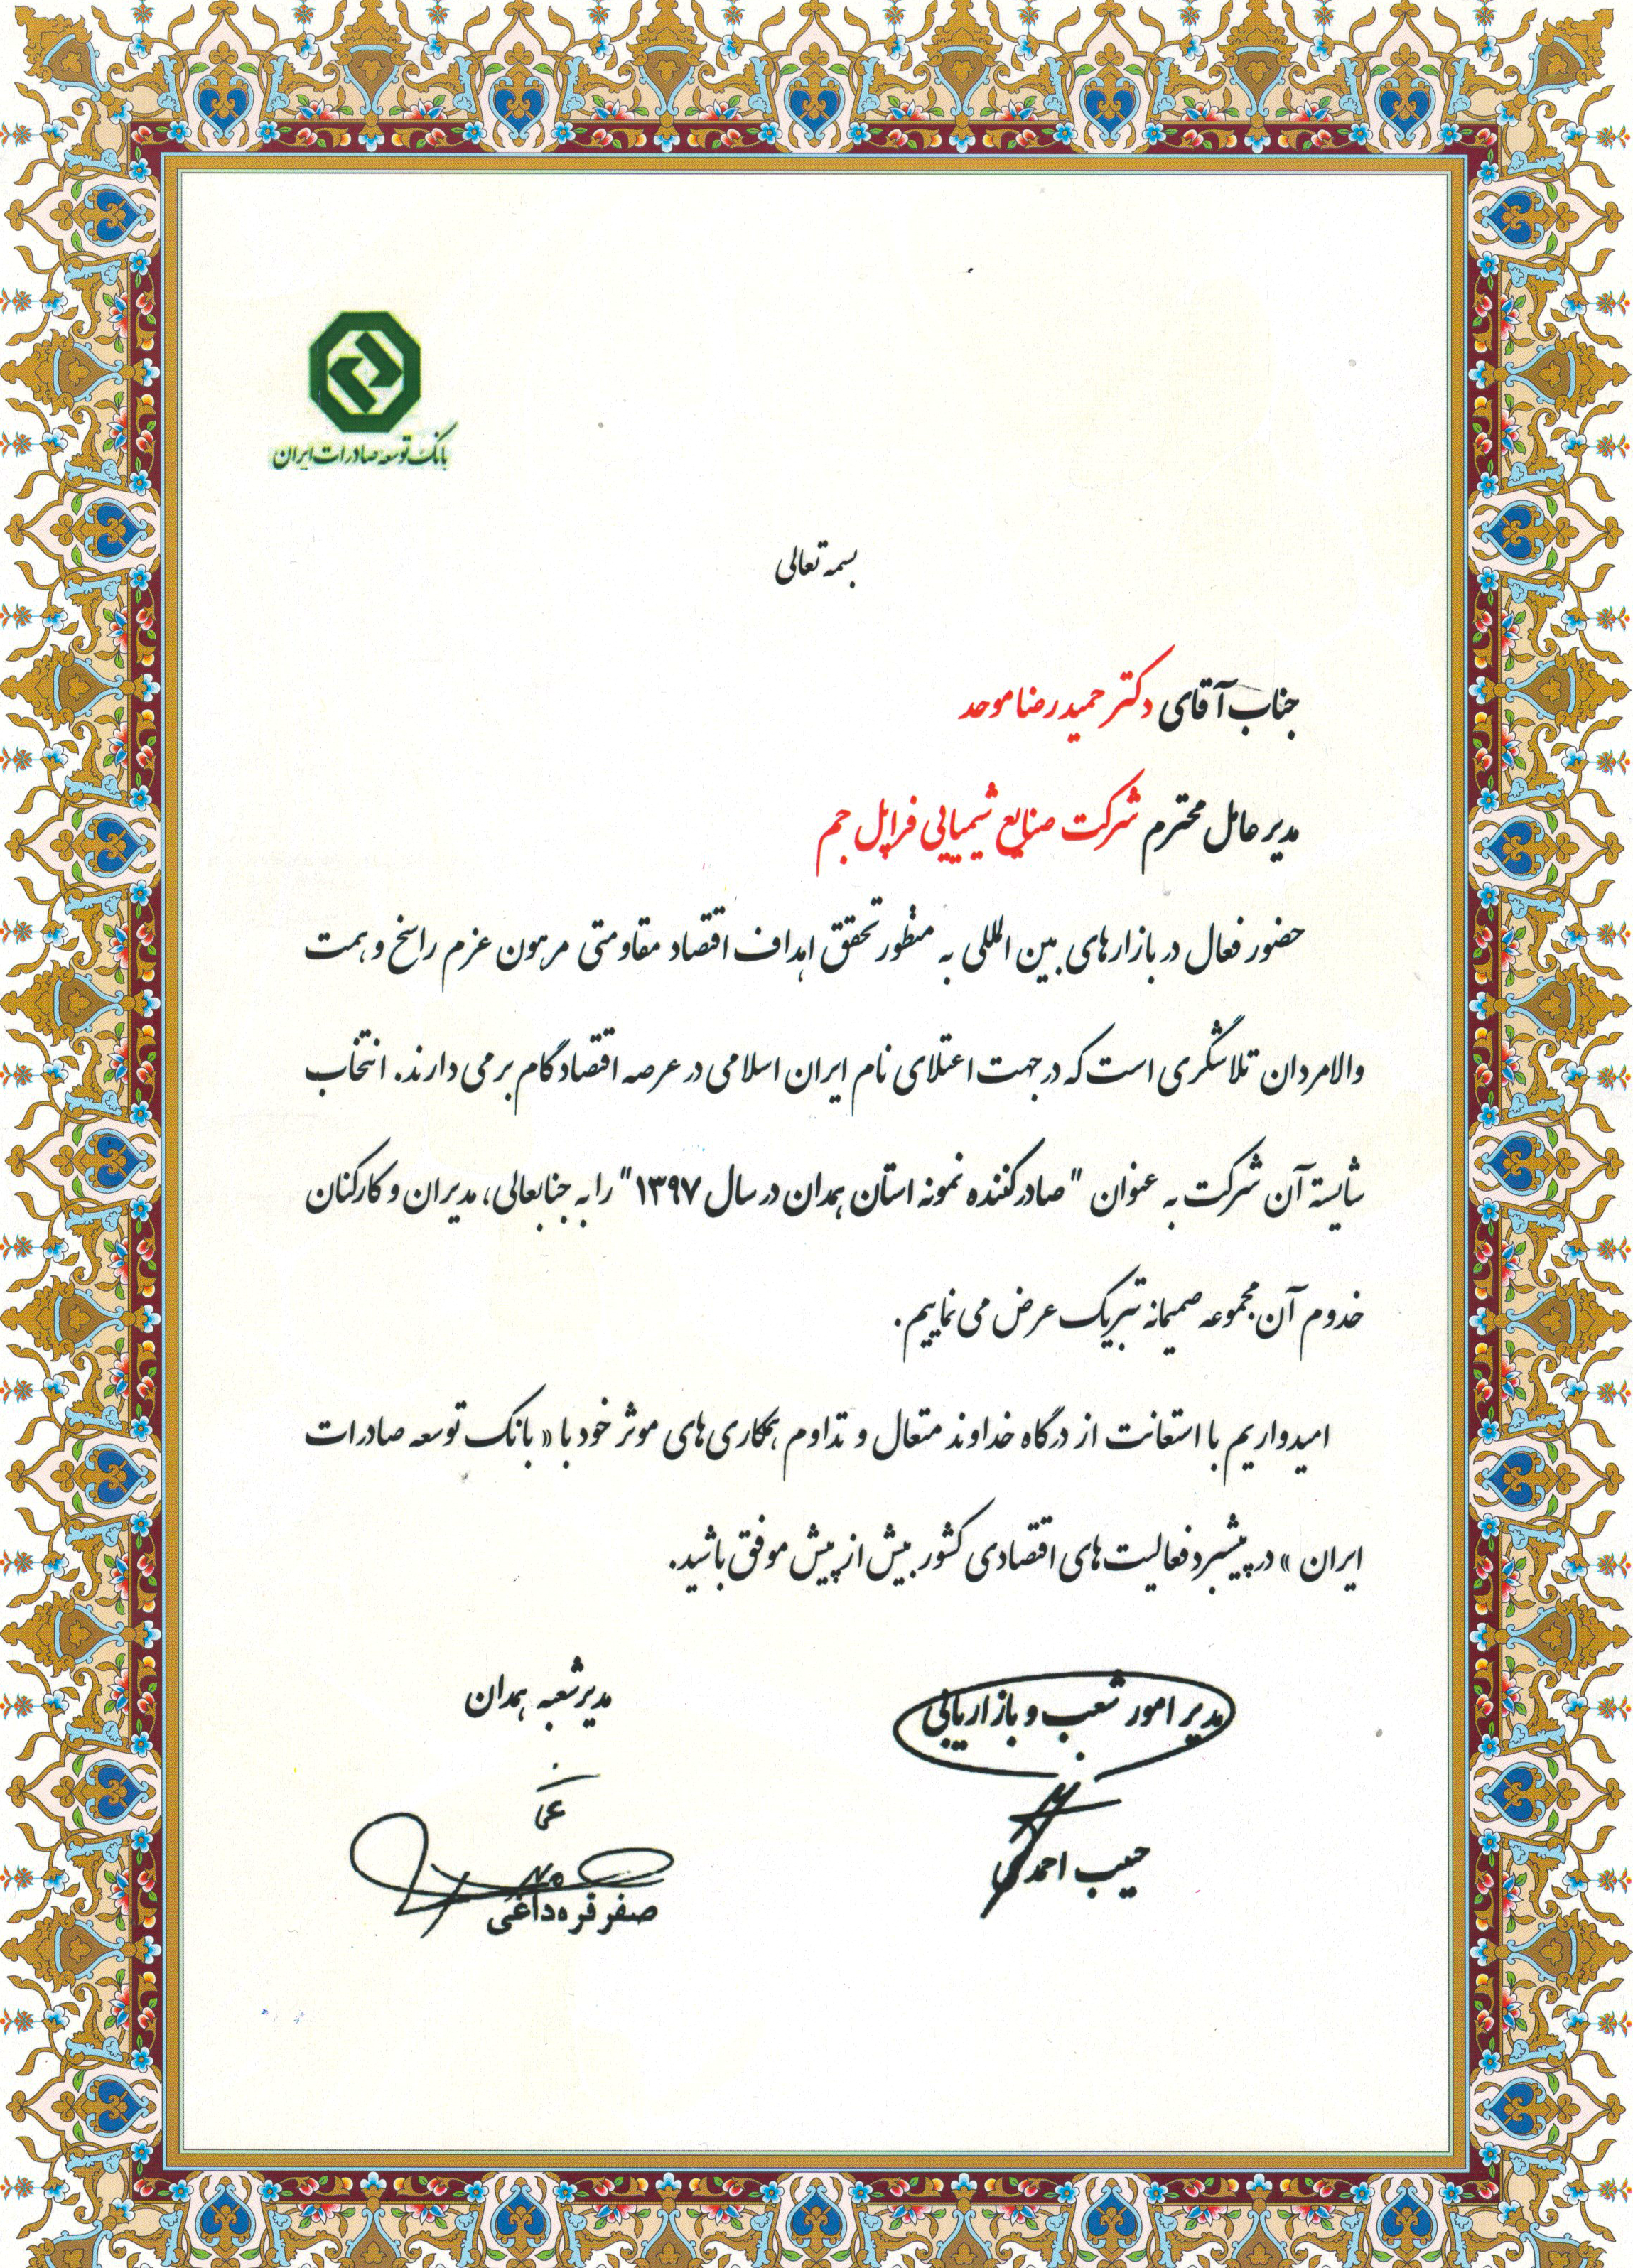 بانک توسعه صادرات ایران
بسمه تعالی
جناب آقای دکتر حمیدرضا موحد
مدیر عامل محترم شرکت صنایع شیمیایی فراپل جم
حضور فعال در بازارهای بین المللی به منظور تحقق اهداف اقتصاد مقاومتی مرهون عزم راسخ و همت
والامردان تلاشگری است که در جهت اعتلای نام ایران اسلامی در عرصه اقتصاد گام برمی دارند. انتخاب
شایسته آن شرکت به عنوان "صادرکننده نمونه استان همدان در سال ۱۳۹۷" را به جنابعالی، مدیران و کارکنان
خدوم آن مجموعه صمیمانه تبریک عرض می نماییم.
امیدواریم با استعانت از درگاه خداوند متعال و تداوم همکاری های موثر خود با « بانک توسعه صادرات
ایران » در پیشبرد فعالیت های اقتصادی کشور بیش از پیش موفق باشید.
مدیر امور شعب و بازاریابی
حبیب احمدی
مدیر شعبه همدان
صفر قره داغی